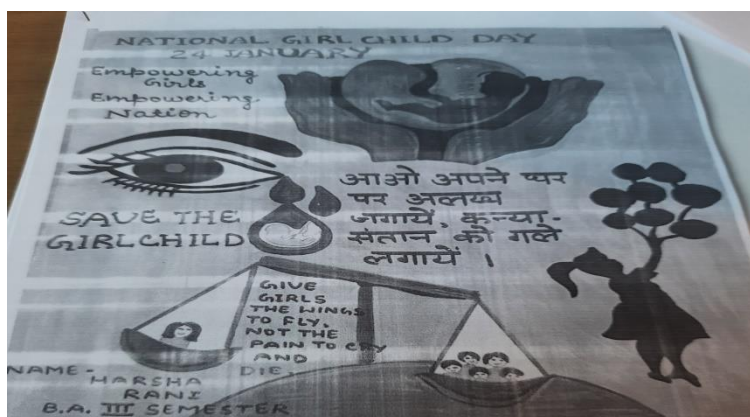 NATIONAL GIRL CHILD DAY
24 JANUARY
Empowering
Girls
Empowering
Nation
SAVE THE
GIRLCHILD
आओ अपने घर
पर अलख
जगायें, कन्या-
संतान को गले
लगायें ।
GIVE
GIRLS
THE WINGS
TO FLY,
NOT THE
PAIN TO CRY
AND
DIE.
NAME-
HARSHA
RANI
B.A. III SEMESTER